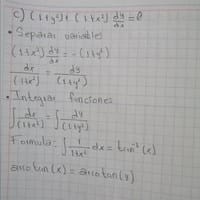 c) (1+y²)+(1+x²) dy/dx = 0
• Separar variables
(1+x²) dy/dx = -(1+y²)
dx/(1+x²) = dy/(1+y²)
• Integrar funciones
∫ dx/(1+x²) = ∫ dy/(1+y²)
Formula: ∫ 1/(1+x²) dx = tan⁻¹(x)
arcotan(x) = arcotan(y)